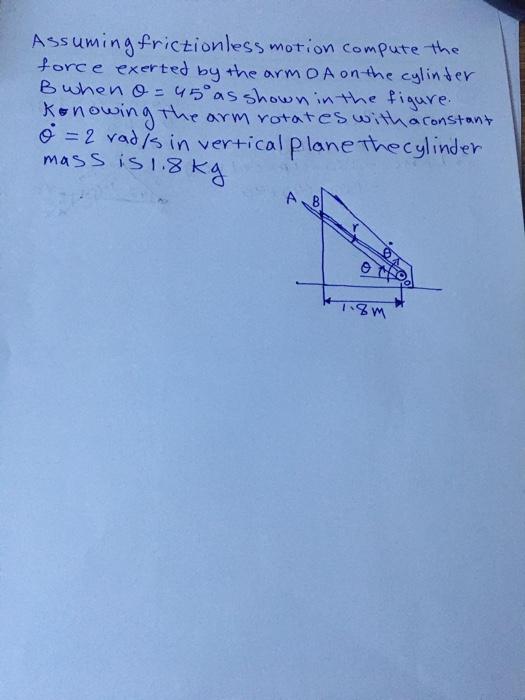 Assuming frictionless motion compute the
force exerted by the arm OA on the cylinder
B when θ = 45° as shown in the figure.
Konowing the arm rotates with a constant
θ̇ = 2 rad/s in vertical plane the cylinder
mass is 1.8 kg
A B
r
θ̇
θ
O
1.8m